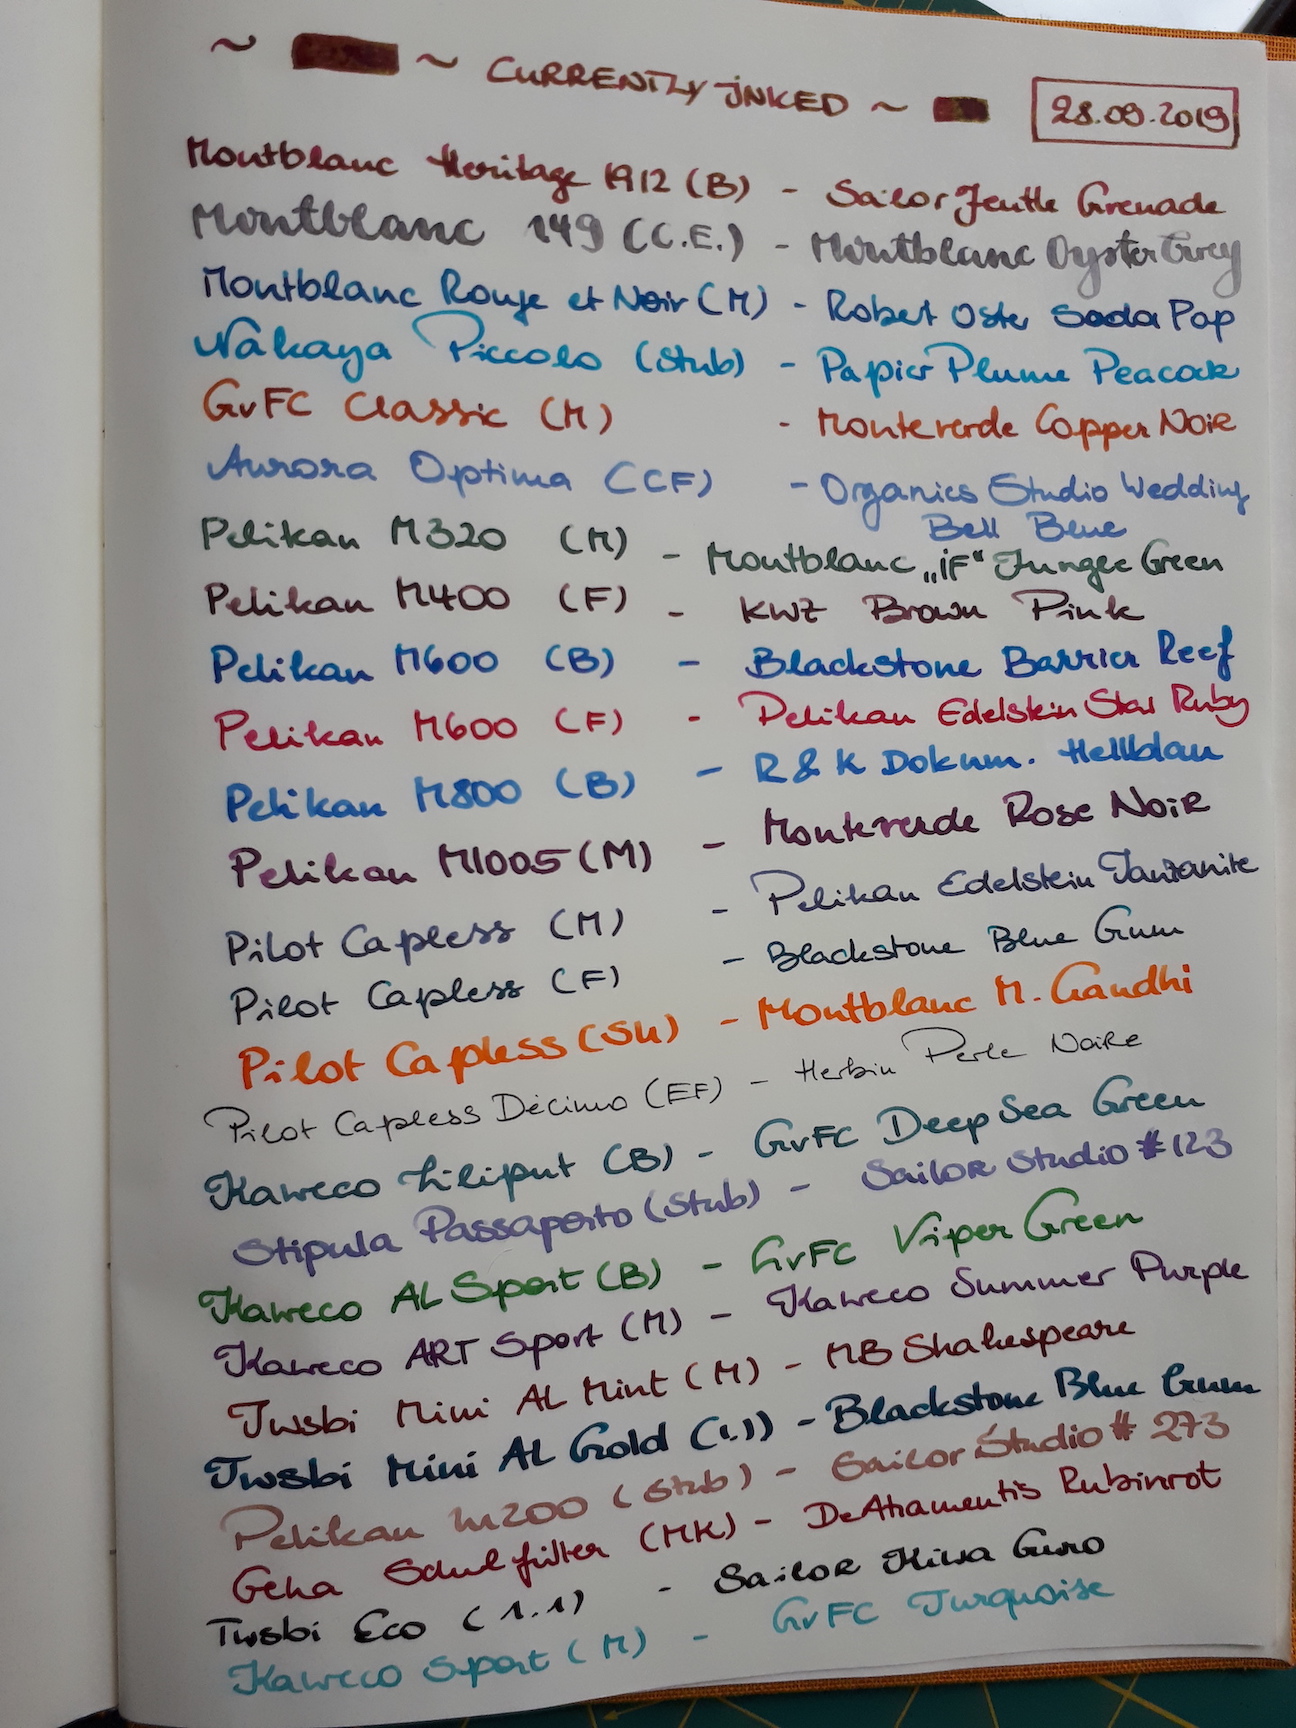 ~ ~ CURRENTLY INKED ~ 28.09.2019
Montblanc Heritage 1912 (B) - Sailor Jentle Grenade
Montblanc 149 (C.E.) - Montblanc Oyster Grey
Montblanc Rouge et Noir (M) - Robert Oster Soda Pop
Nakaya Piccolo (Stub) - Papier Plume Peacock
GvFC Classic (M) - Monteverde Copper Noir
Aurora Optima (CCF) - Organics Studio Wedding
Bell Blue
Pelikan M320 (M) - Montblanc „iF“ Jungle Green
Pelikan M400 (F) - KWZ Brown Pink
Pelikan M600 (B) - Blackstone Barrier Reef
Pelikan M600 (F) - Pelikan Edelstein Star Ruby
Pelikan M800 (B) - R & K Dokum. Hellblau
Pelikan M1005 (M) - Monteverde Rose Noir
Pilot Capless (M) - Pelikan Edelstein Tanzanite
Pilot Capless (F) - Blackstone Blue Gum
Pilot Capless (SU) - Montblanc M. Gandhi
Pilot Capless Décimo (EF) - Herbin Perle Noire
Kaweco Liliput (B) - GvFC Deep Sea Green
Stipula Passaporto (Stub) - Sailor Studio #123
Kaweco AL Sport (B) - GvFC Viper Green
Kaweco ART Sport (M) - Kaweco Summer Purple
Twsbi Mini AL Mint (M) - MB Shakespeare
Twsbi Mini AL Gold (1.1) - Blackstone Blue Gum
Pelikan M200 (Stub) - Sailor Studio # 273
Geha Schulfüller (MK) - DeAtramentis Rubinrot
Twsbi Eco (1.1) - Sailor Kiwa Guro
Kaweco Sport (M) - GvFC Turquoise